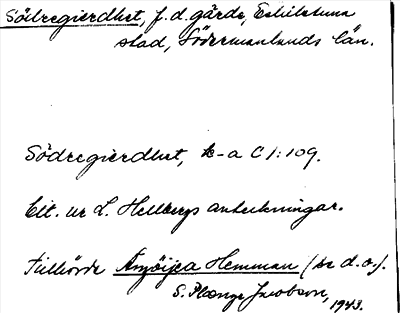 Södregierdhet, f.d. gärde, Eskilstuna
stad, Södermanlands län.
Södregierdhet, k-a C I: 109.
Cit. ur L. Hellbergs anteckningar.
Tillhörde Hemman (se d.o.).
S. Plænge Jacobson, 1943.